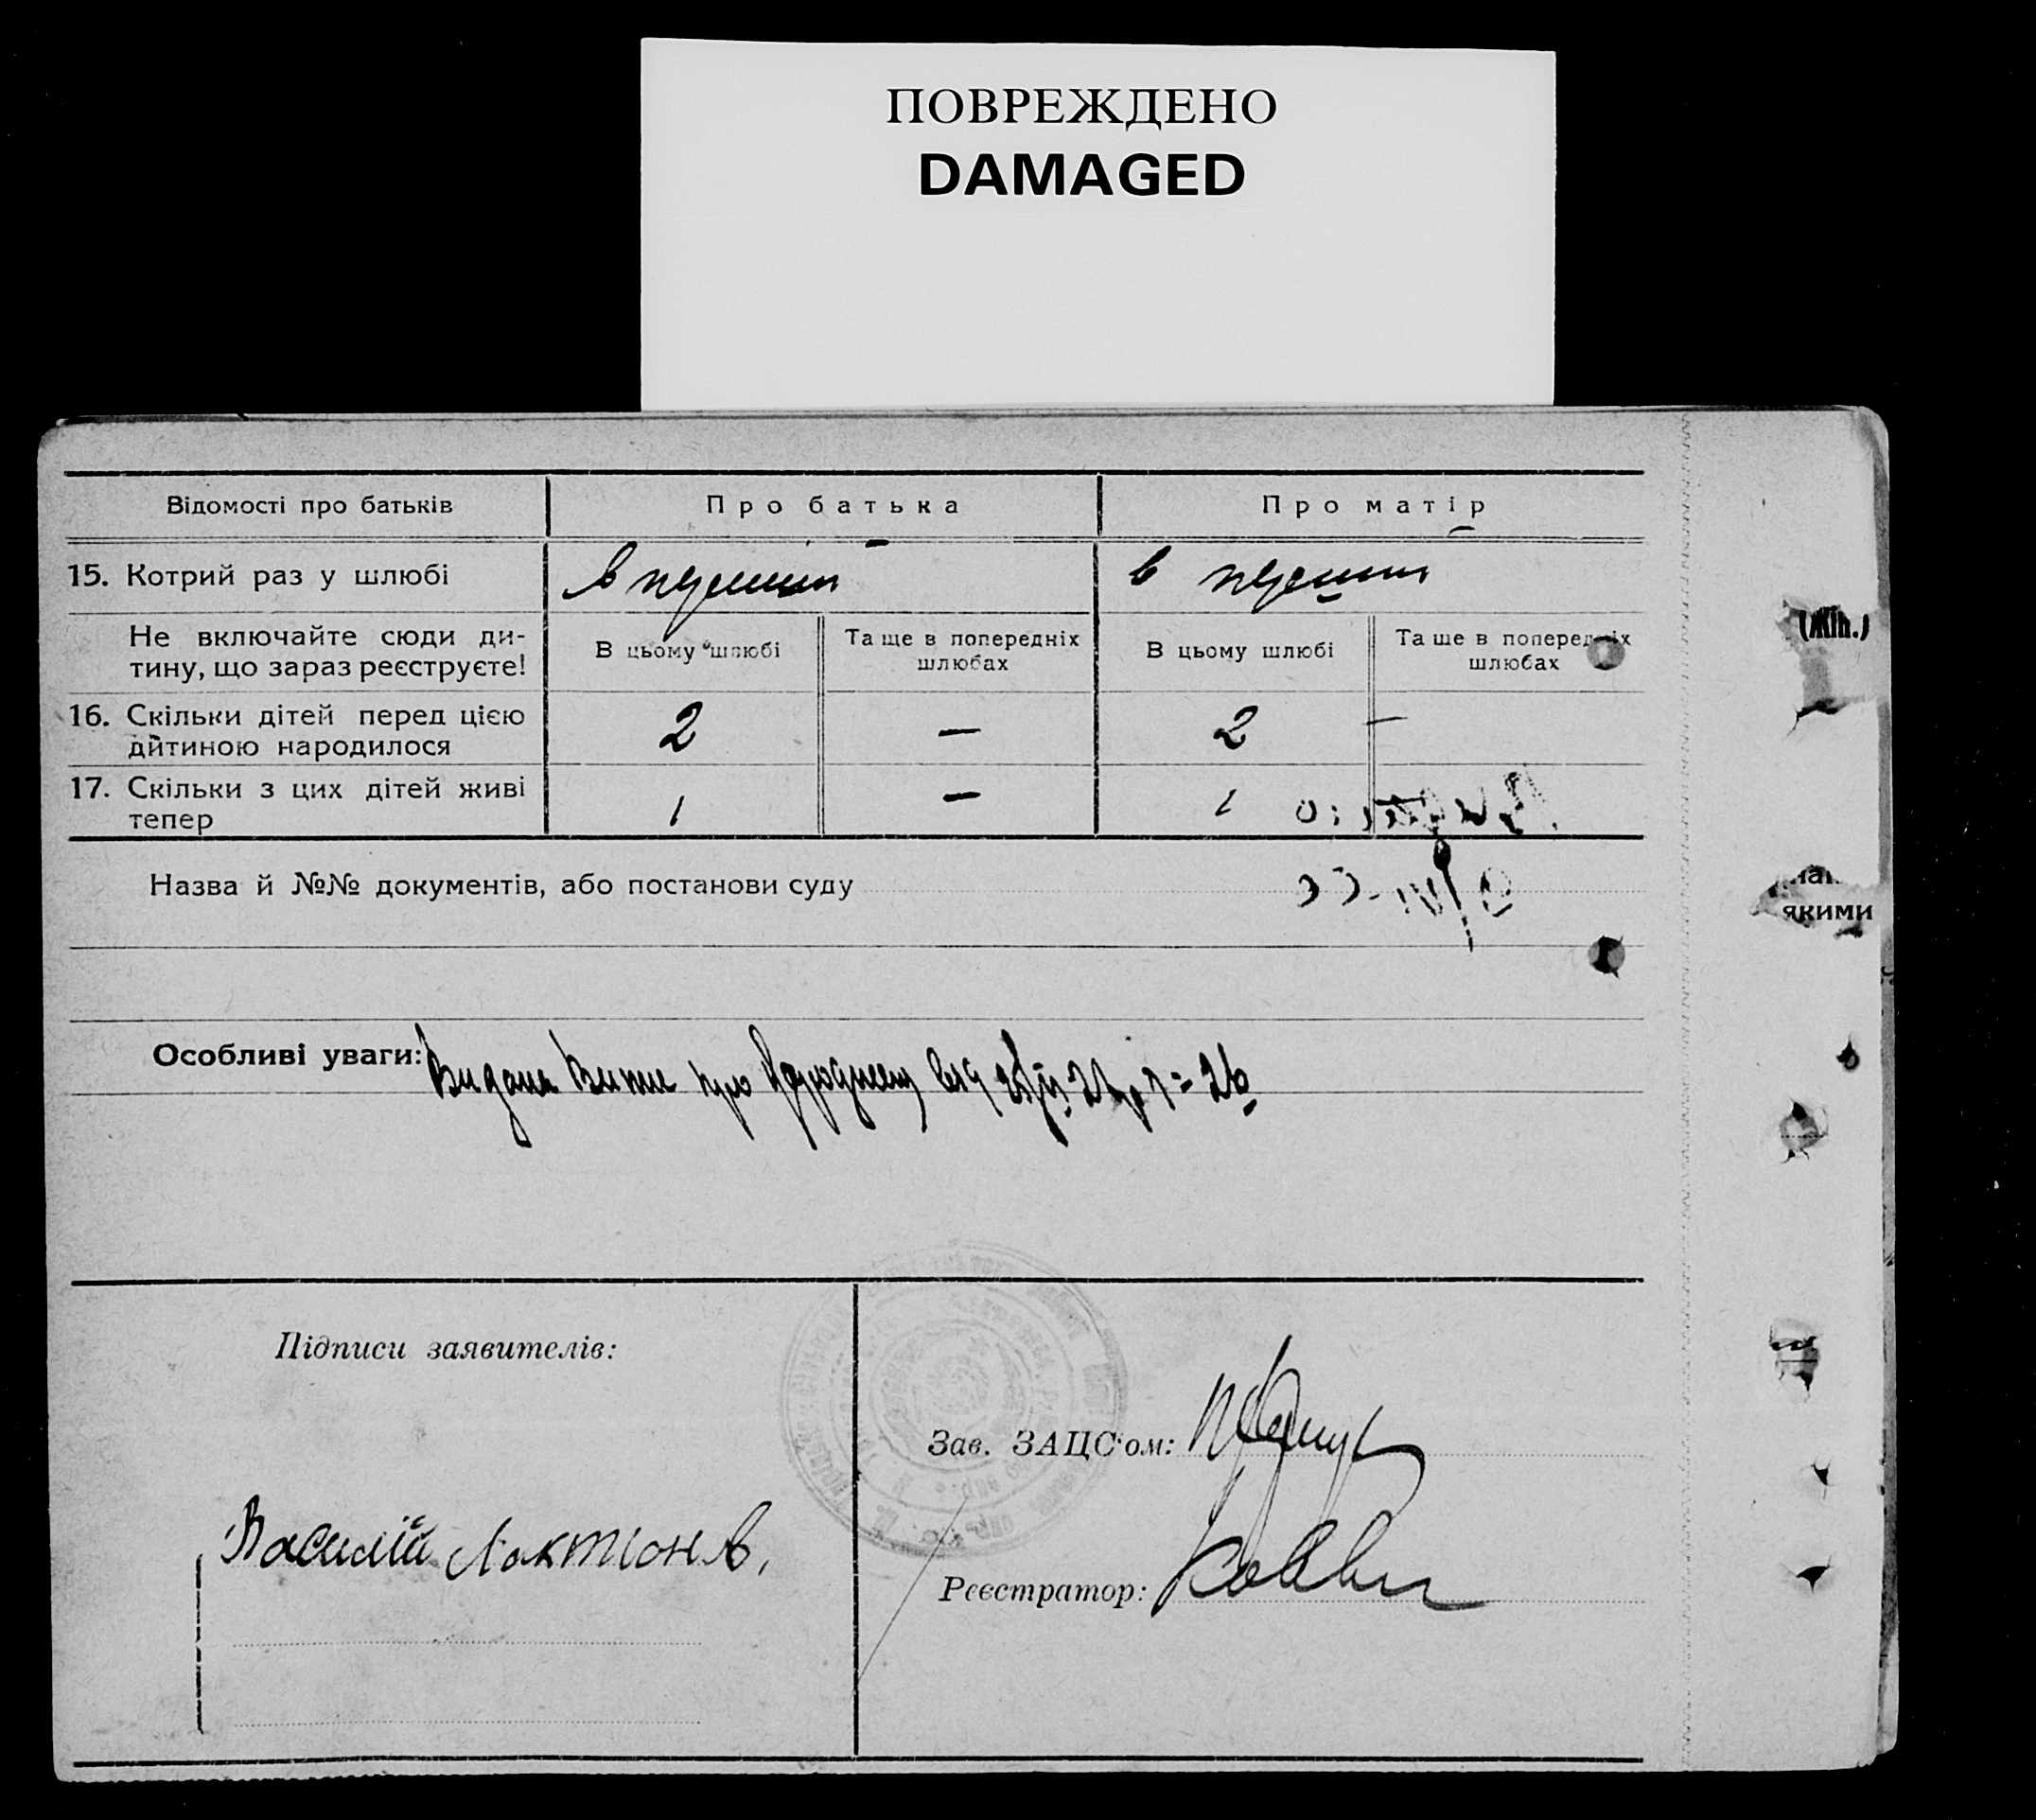 ПОВРЕЖДЕНО
DAMAGED
Відомості про батьків
Про батька
Про матір
15. Котрий раз у шлюбі
в перший
в перший
Не включайте сюди ди-
тину, що зараз реєструєте!
В цьому шлюбі
Та ще в попередніх
шлюбах
В цьому шлюбі
Та ще в попередніх
шлюбах
16. Скільки дітей перед цією
дитиною народилося
2
—
2
—
17. Скільки з цих дітей живі
тепер
1
—
1
Назва й №№ документів, або постанови суду
Особливі уваги: Видана про
Підписи заявителів:
Зав. ЗАЦС'ом:
Василій Лактіонов,
Реєстратор:
(Жін.)
якими